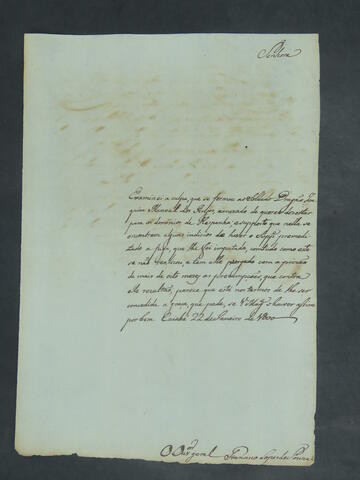 Senhora
Examinei a culpa, que se formou ao Soldado Dragão Joa
quim Manoel dos Reis, accuzado de querer dezertar
para os dominios de Hespanha e supposto que nella se
encontrem alguns indicios de haver o mesmo premedi
tado a fuga, que lhe foi imputada, comtudo como esta
se não verificou, e tem elle purgado com a prizão
de mais de oito mezes as prezumpçoens, que contra
elle rezultão, parece que está nos termos de lhe ser
concedida a graça, que pede, se V. Mag.e o houver assim
por bem. Cuiabá 22 de Janeiro de 1800
O Ouv.or geral